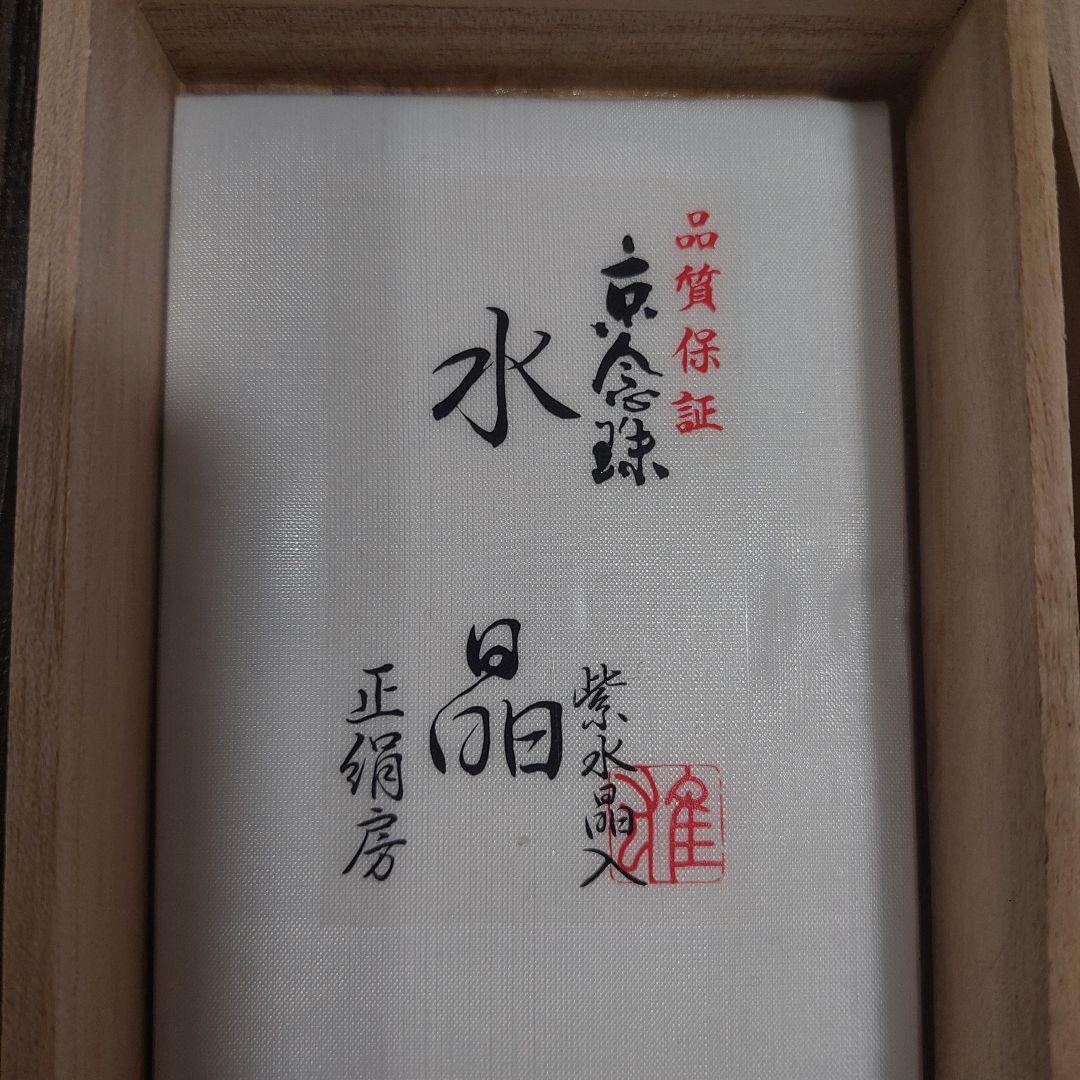 品質保証
京念珠
紫水晶入
水晶
正絹房